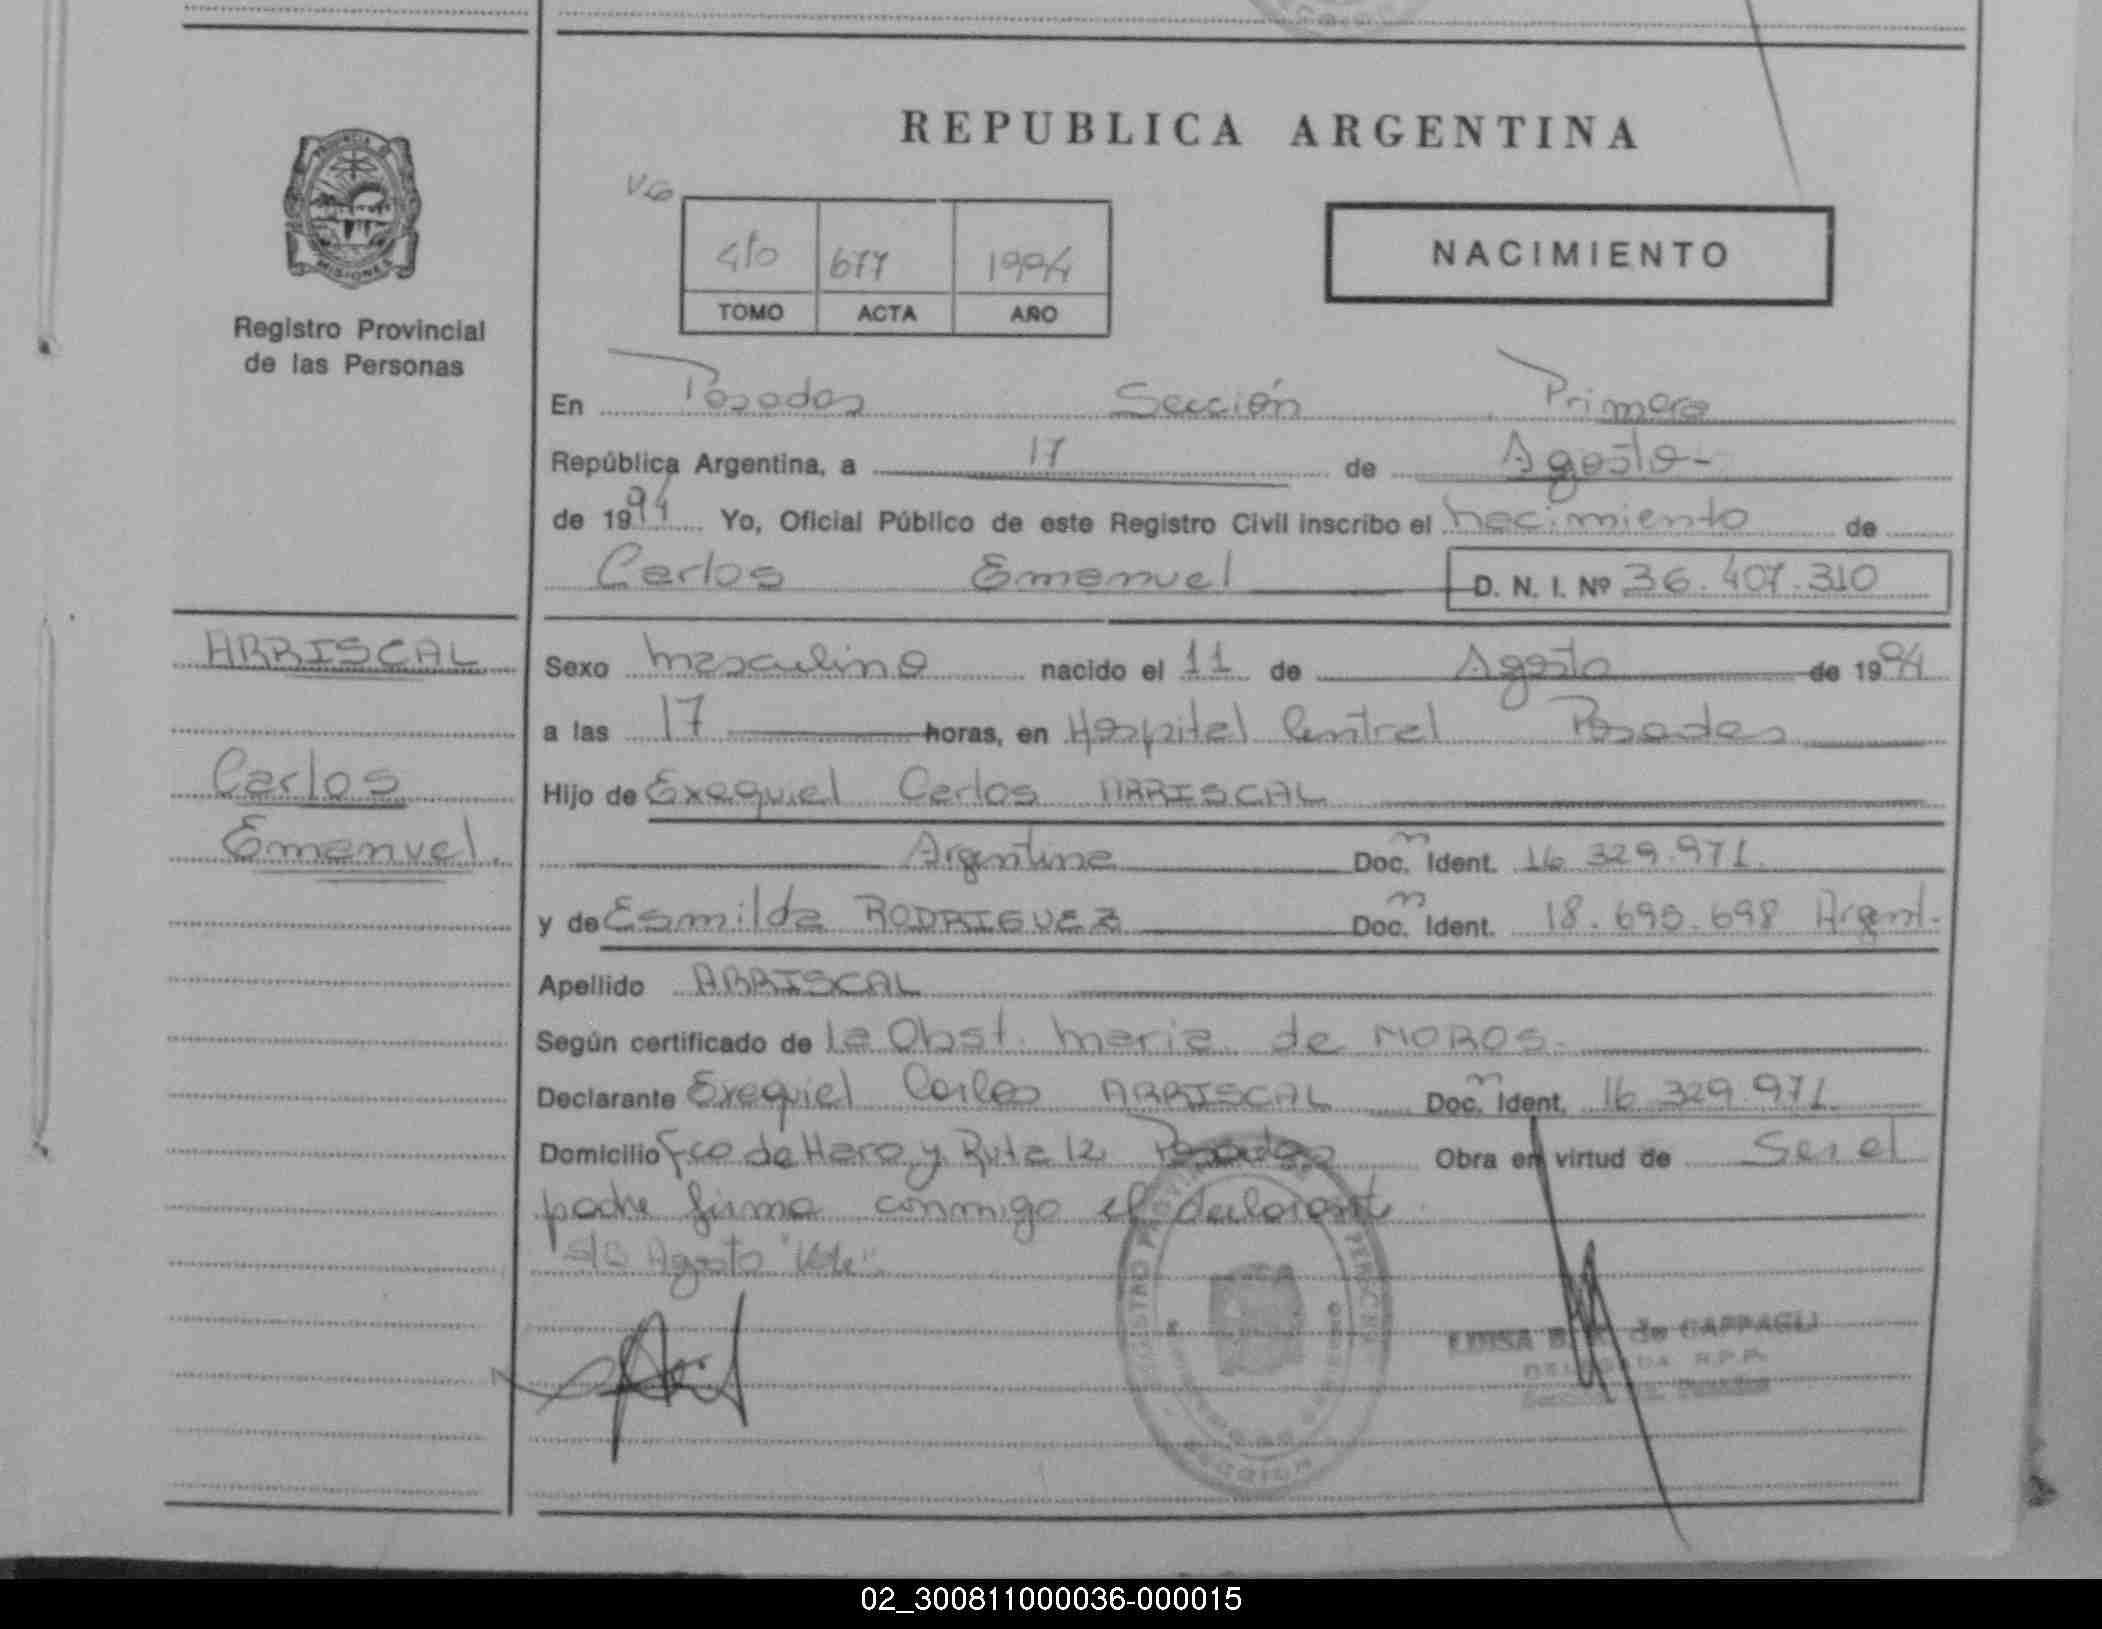 REPUBLICA ARGENTINA
PROVINCIA DE
MISIONES
Registro Provincial
de las Personas
4to 677 1994
TOMO ACTA AÑO
NACIMIENTO
En Posadas Sección Primera
República Argentina, a 17 de Agosto-
de 1994 Yo, Oficial Público de este Registro Civil inscribo el nacimiento de
Carlos Emanuel D. N. I. Nº 36.407.310
ARRISCAL
Carlos
Emanuel.
Sexo masculino nacido el 11 de Agosto de 1994
a las 17 horas, en Hospital Central Posadas
Hijo de Exequiel Carlos ARRISCAL
Argentina Doc. Ident. 16.329.971.
y de Esmilda RODRIGUEZ Doc. Ident. 18.695.698 Argent.
Apellido ARRISCAL
Según certificado de la Obst. Maria de MOROS.
Declarante Exequiel Carlos ARRISCAL Doc. Ident. 16.329.971
Domicilio Fco de Haro y Ruta 12 Posadas Obra en virtud de Ser el
padre firma conmigo el declarante
S/B Agosto "Vale".
LUISA B. de CAPPAGLI
DELEGADA R.P.P.
02_300811000036-000015